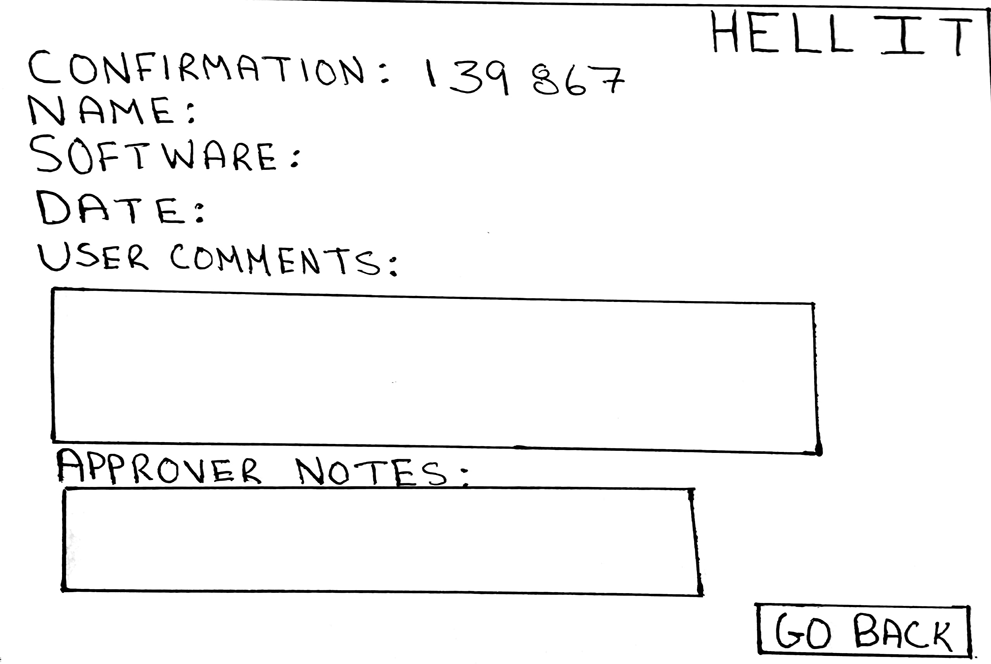 HELL IT
CONFIRMATION: 139867
NAME:
SOFTWARE:
DATE:
USER COMMENTS:
APPROVER NOTES:
GO BACK